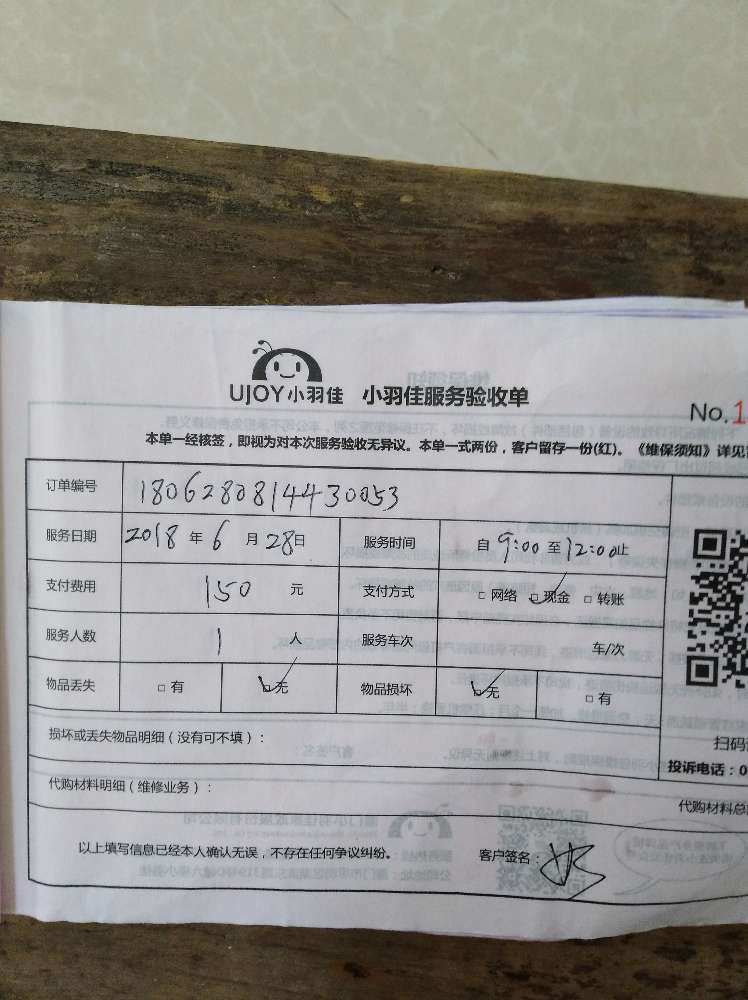 UJOY小羽佳 小羽佳服务验收单
No.1
本单一经核签，即视为对本次服务验收无异议。本单一式两份，客户留存一份(红)。《维保须知》详见
订单编号 1806280814430053
服务日期 2018 年 6 月 28日 服务时间 自 9:00 至 12:00止
支付费用 150 元 支付方式 □ 网络 □ 现金 □ 转账
服务人数 1 人 服务车次 车/次
物品丢失 □ 有 □ 无 物品损坏 □ 无 □ 有
损坏或丢失物品明细（没有可不填）： 扫码
投诉电话：0
代购材料明细（维修业务）：
代购材料总
以上填写信息已经本人确认无误，不存在任何争议纠纷。 客户签名：